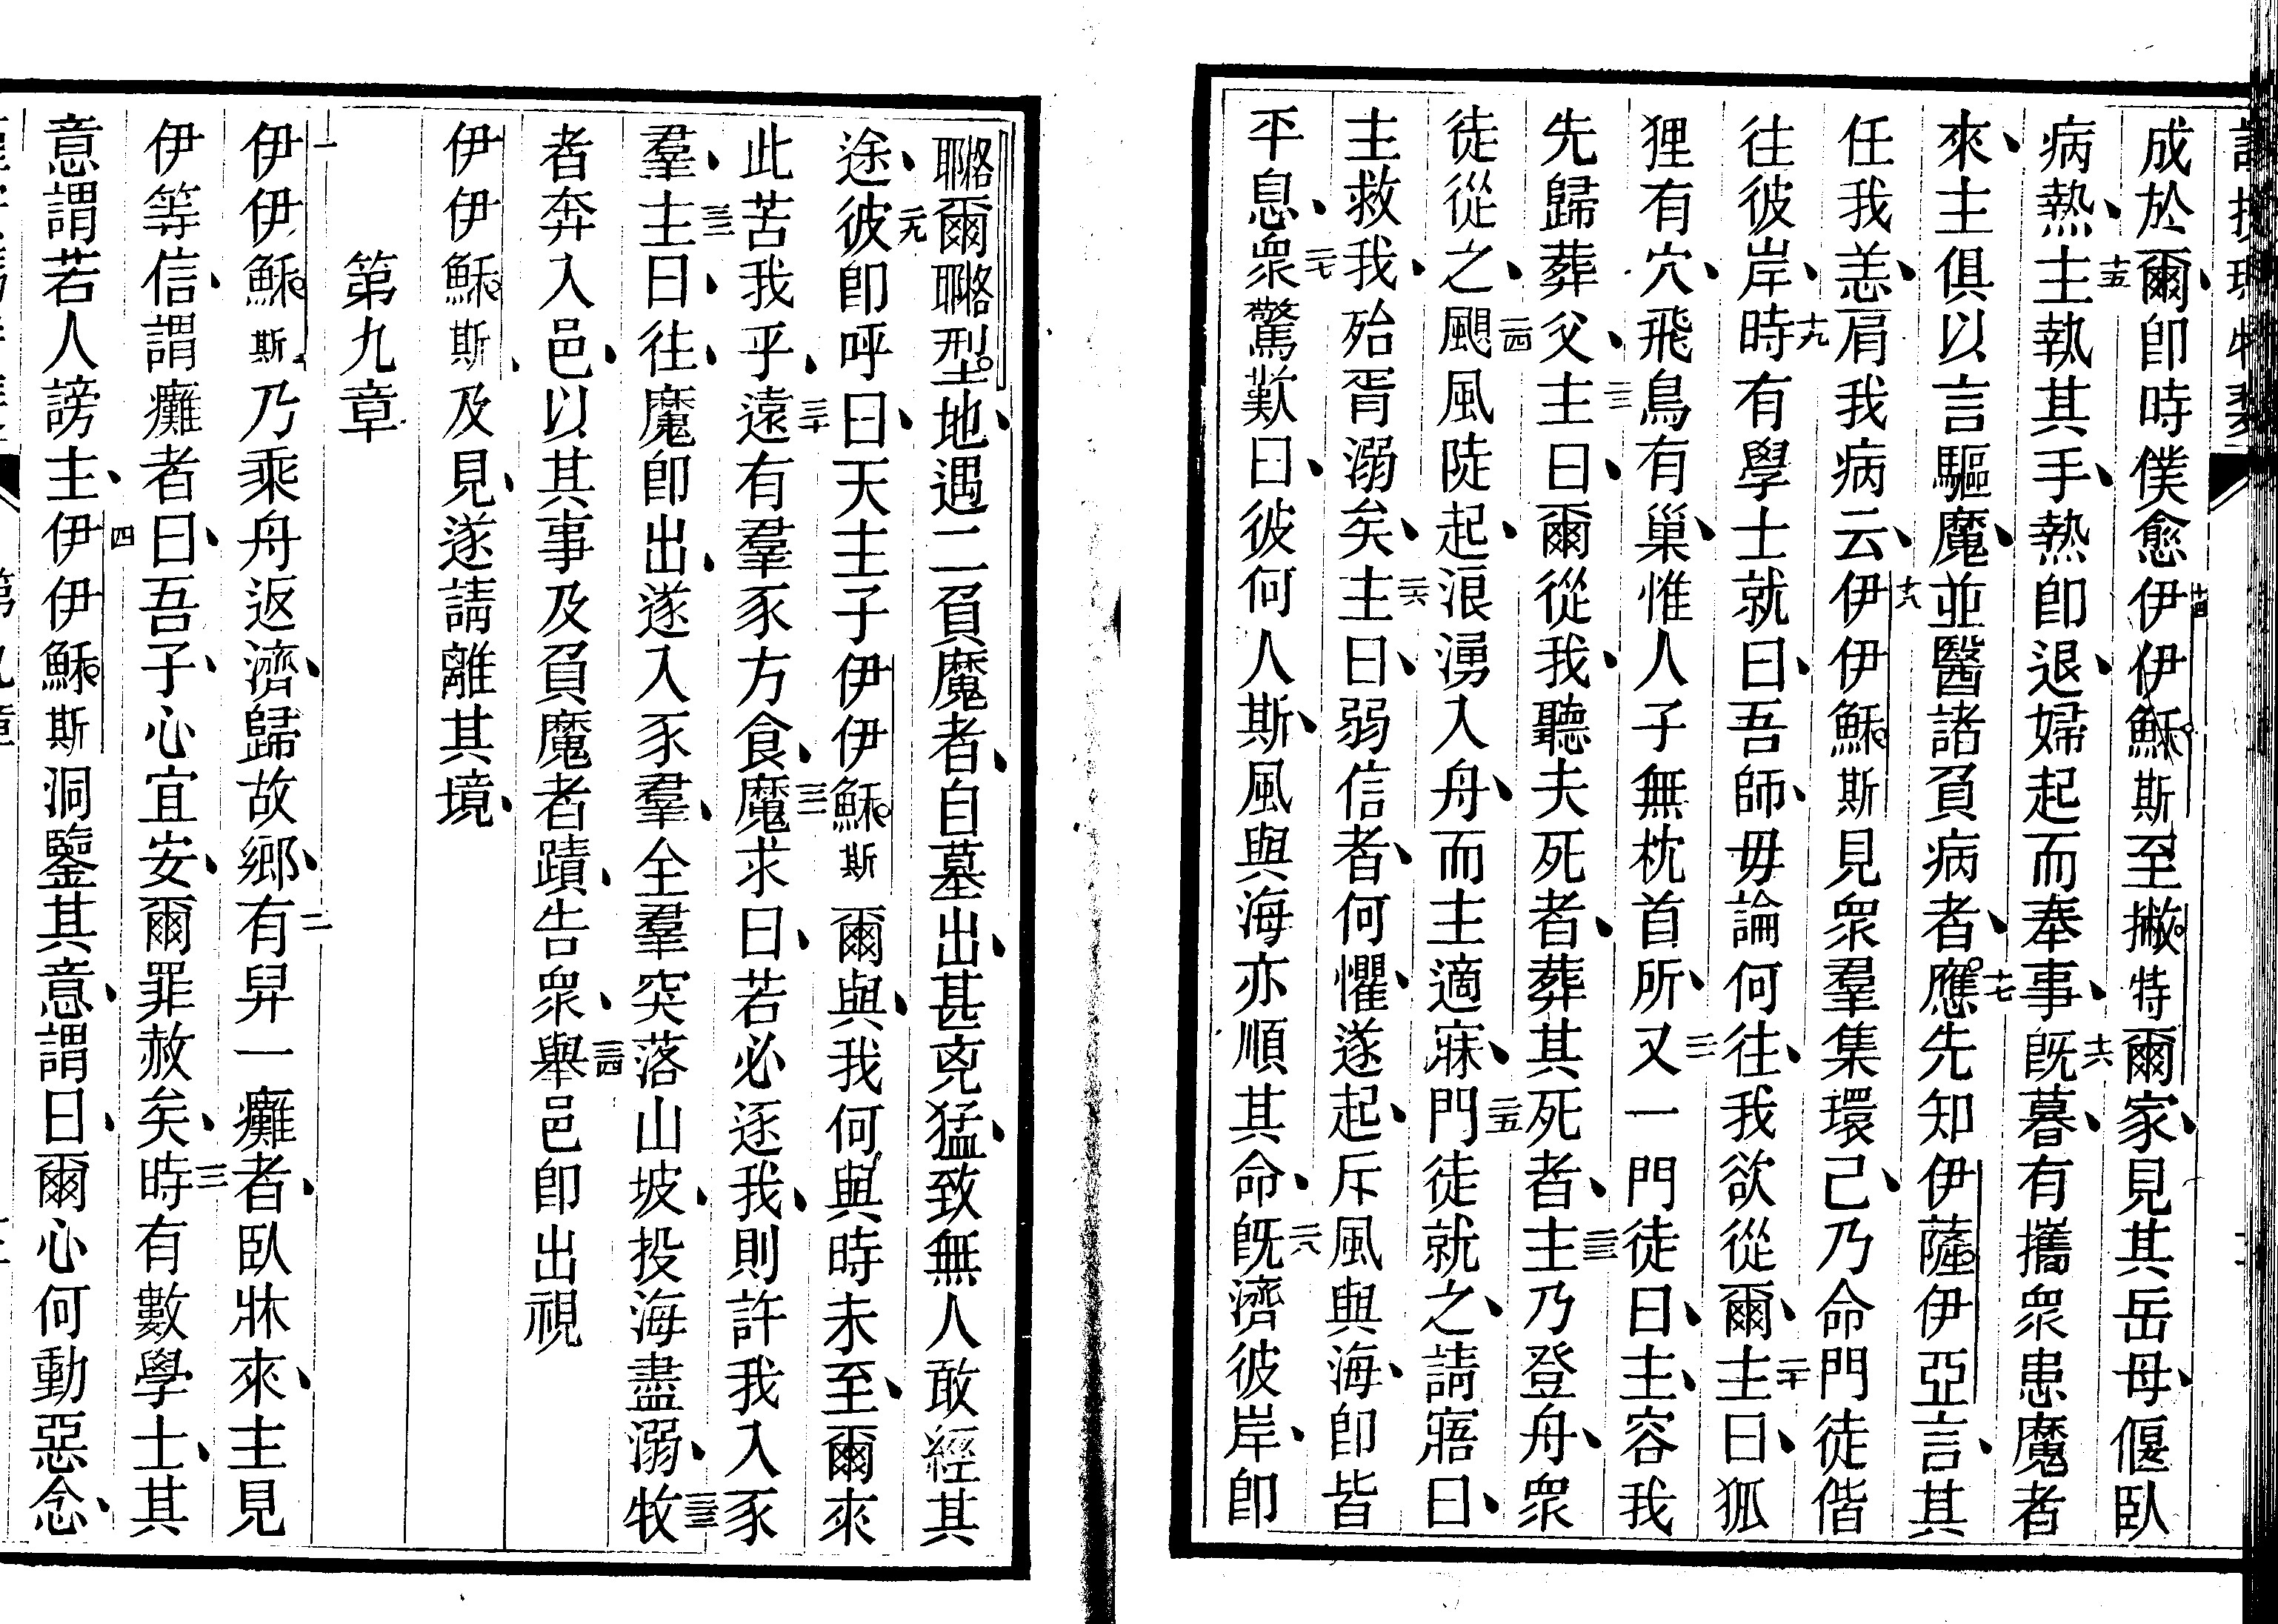 成於爾、卽時僕愈十四伊伊穌斯至撇特爾家、見其岳母、偃臥
病熱、十五主執其手、熱卽退、婦起而奉事、十六旣暮、有攜衆患魔者
來、主俱以言驅魔、並醫諸負病者、十七應先知伊薩伊亞言、其
任我恙、肩我病云、十八伊伊穌斯見衆羣集環己、乃命門徒偕
往彼岸、十九時有學士就曰、吾師、毋論何往、我欲從爾、二十主曰、狐
狸有穴、飛鳥有巢、惟人子無枕首所、二一又一門徒曰、主、容我
先歸葬父、二二主曰、爾從我、聽夫死者、葬其死者、二三主乃登舟、衆
徒從之、二四颶風陡起、浪湧入舟、而主適寐、二五門徒就之、請寤曰、
主救我、殆胥溺矣、二六主曰、弱信者、何懼、遂起、斥風與海、卽皆
平息、二七衆驚歎曰、彼何人斯、風與海亦順其命、二八旣濟彼岸、卽
㗉爾㗉型地、遇二負魔者、自墓出、甚兇猛、致無人敢經其
途、二九彼卽呼曰、天主子伊伊穌斯爾與、我何與、時未至、爾來
此苦我乎、三十遠有羣豕方食、三一魔求曰、若必逐我、則許我入豕
羣、三二主曰、往、魔卽出、遂入豕羣、全羣突落山坡、投海盡溺、三三牧
者奔入邑、以其事及負魔者蹟、告衆、三四舉邑卽出視
伊伊穌斯、及見、遂請離其境、
第九章
一伊伊穌斯乃乘舟返濟、歸故鄉、二有舁一癱者、臥牀來、主見
伊等信、謂癱者曰、吾子、心宜安、爾罪赦矣、三時有數學士、其
意謂若人謗主、四伊伊穌斯洞鑒其意、謂曰、爾心何動惡念、
第九章